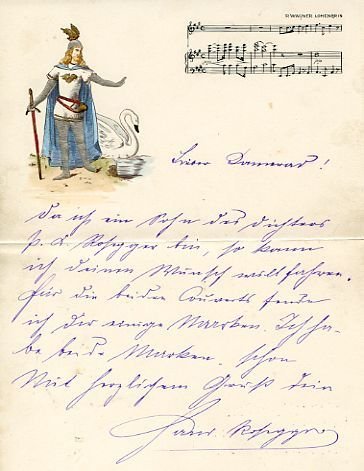 R. WAGNER LOHENGRIN
Lieber Kamerad!
Da ich ein Sohn des Dichters
P. K. Rosegger bin, so kann
ich deinen Wunsch willfahren.
Für die beiden Couverts sende
ich dir einige Marken. Ich ha-
be beide Marken schon
Mit herzlichem Gruß dein
Rosegger